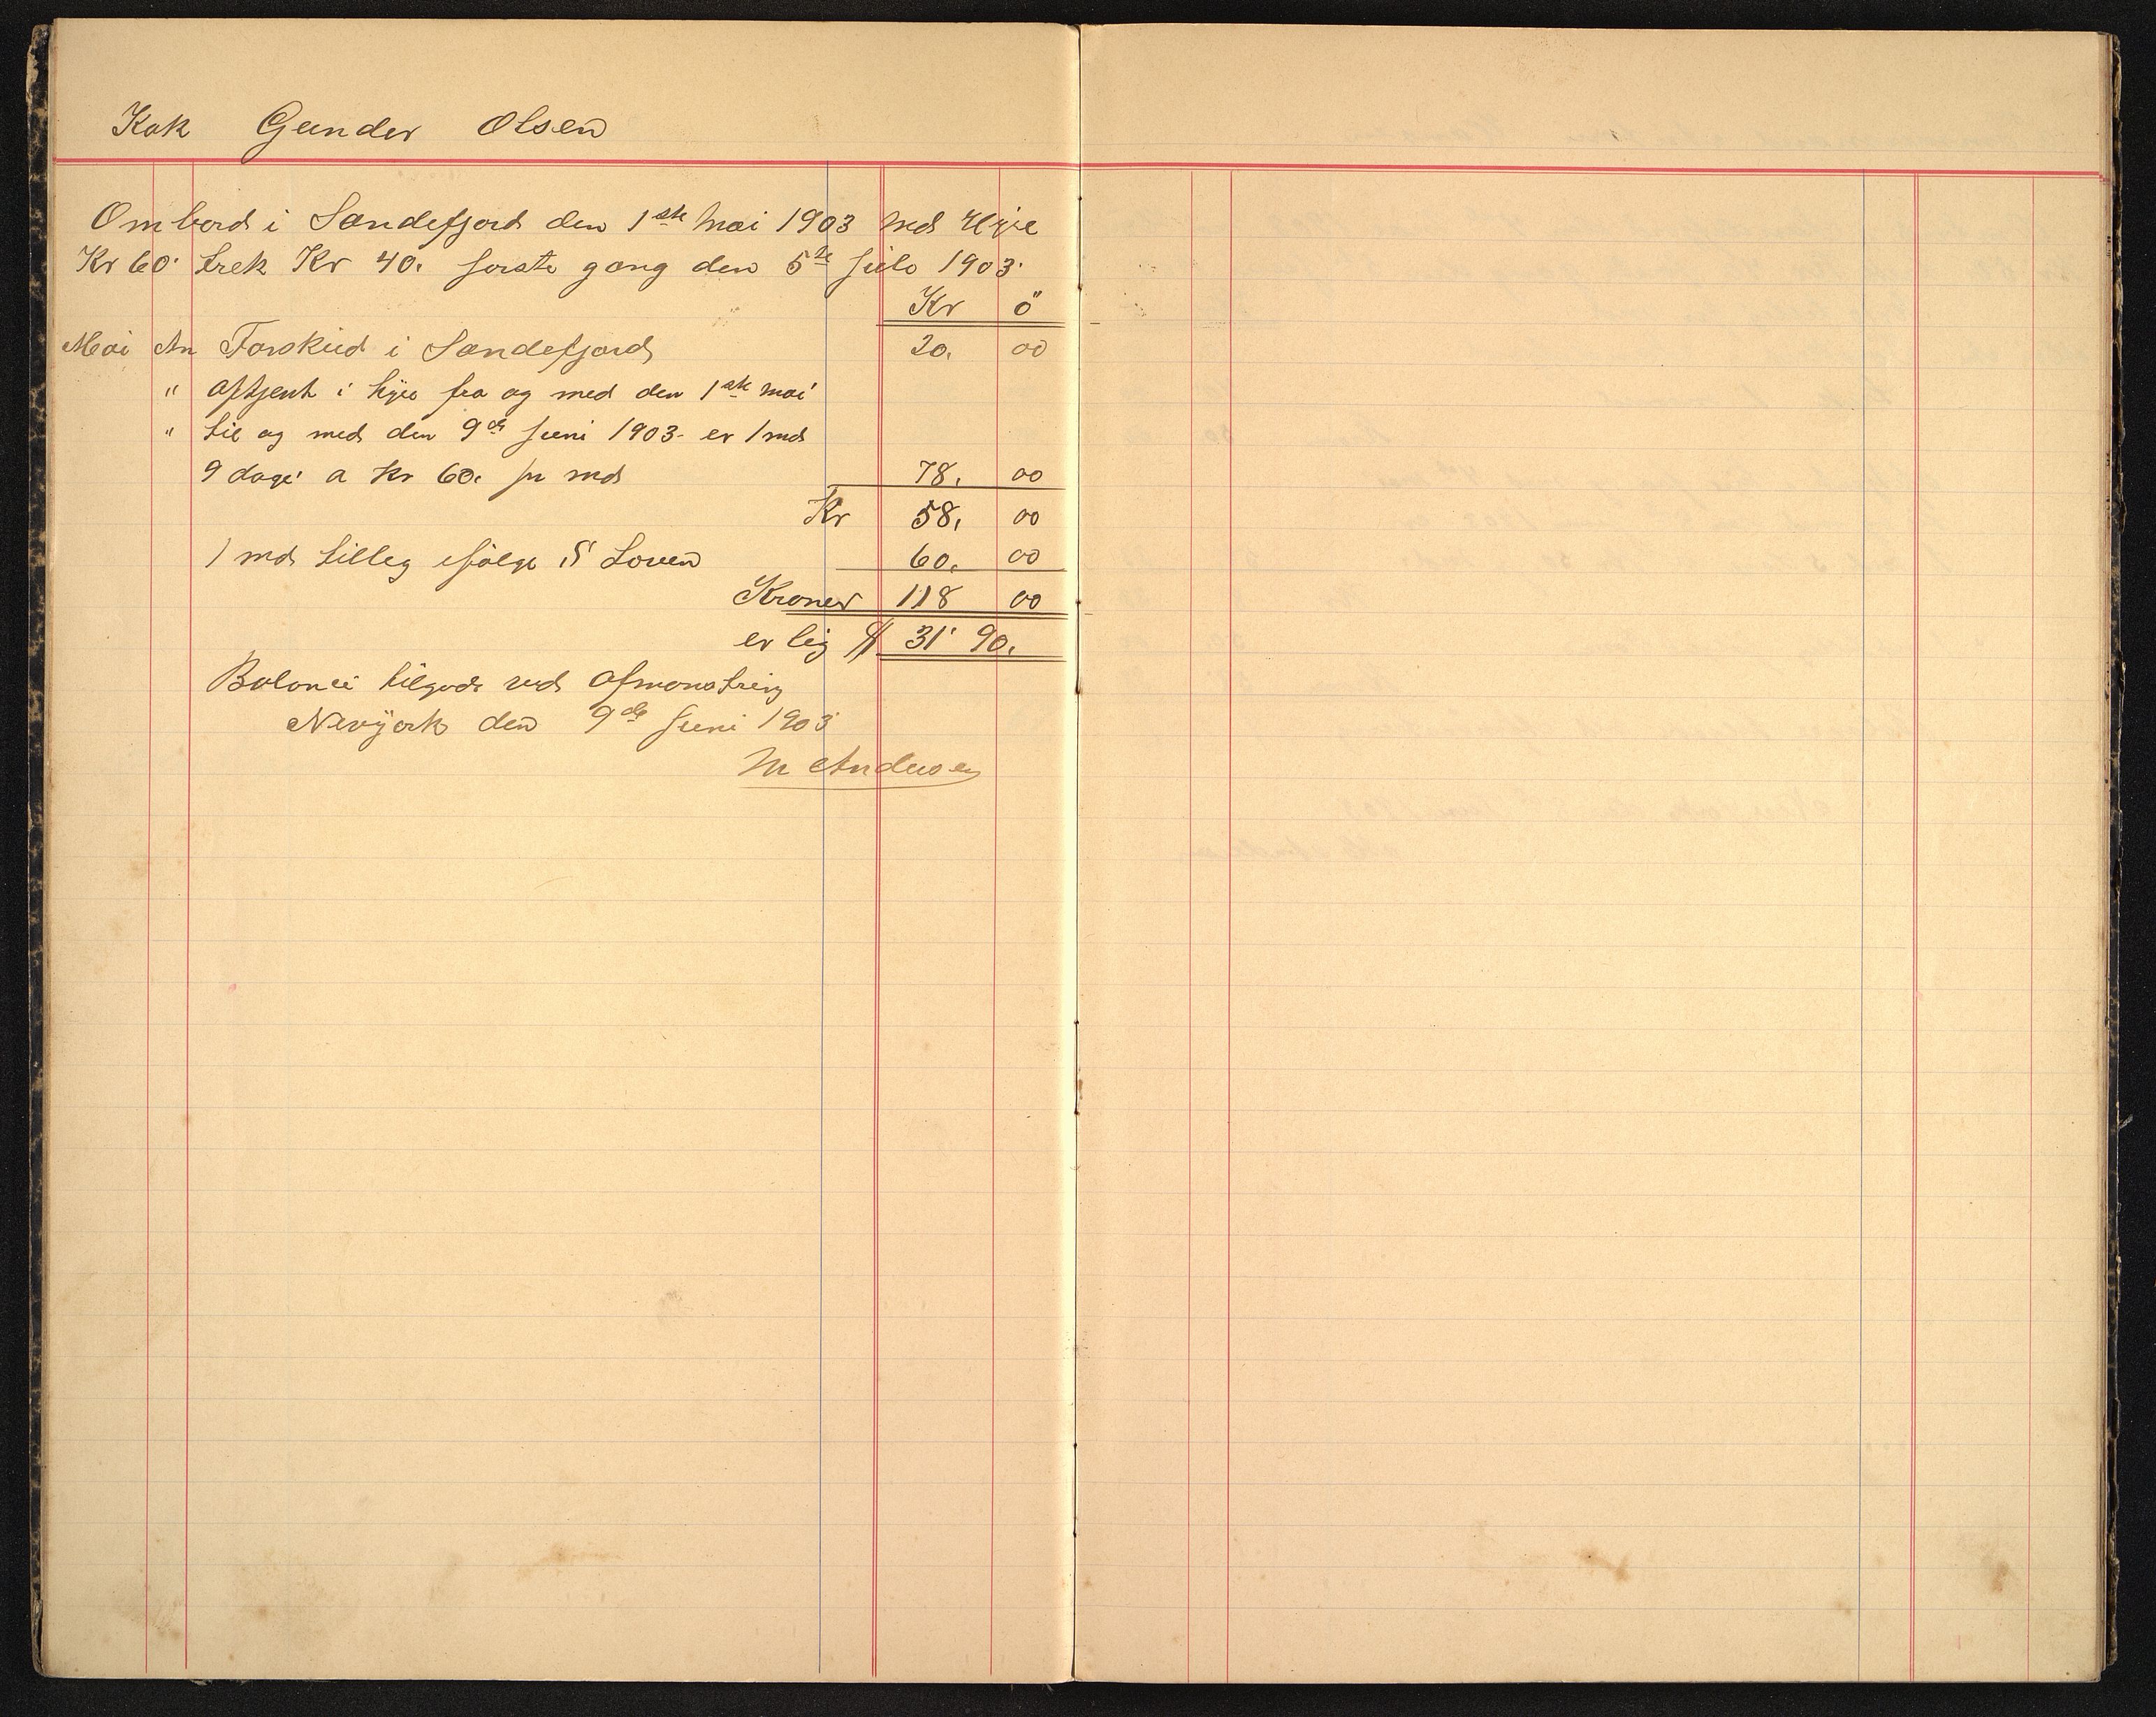 Kok Gunder Olsen
Ombord i Sandefjord den 1ste Mai 1903 med Hyre
Kr 60. trek Kr 40. forste gang den 5te Juli 1903.
Kr ö
Mai An Forskud i Sandefjord 20. 00
" Aftjent i hyre fra og med den 1ste Mai
" til og med den 9de Juni 1903. er 1 md
9 dage a Kr 60. pr md 78. 00
Kr 58. 00
1 md tilleg ifölge S Loven 60. 00
Kroner 118 00
er lig $ 31. 90.
Balance tilgode ved Afmonstring
Newyork den 9de Juni 1903
M Andersen